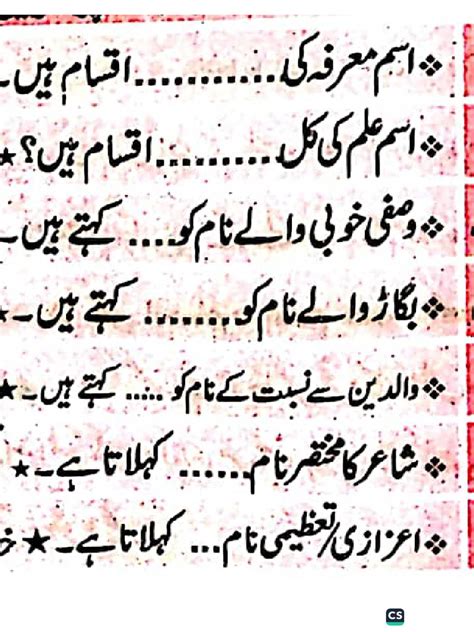 ❖ اسم معرفہ کی ............ اقسام ہیں۔
❖ اسم علم کی کل ............ اقسام ہیں؟ ★
❖ وصفی خوبی والے نام کو .... کہتے ہیں۔
❖ بگاڑ والے نام کو ........ کہتے ہیں۔ ★
❖ والدین سے نسبت کے نام کو ..... کہتے ہیں۔ ★
❖ شاعر کا مختصر نام ...... کہلاتا ہے۔ ★
❖ اعزازی/تعظیمی نام ... کہلاتا ہے۔ ★
CS